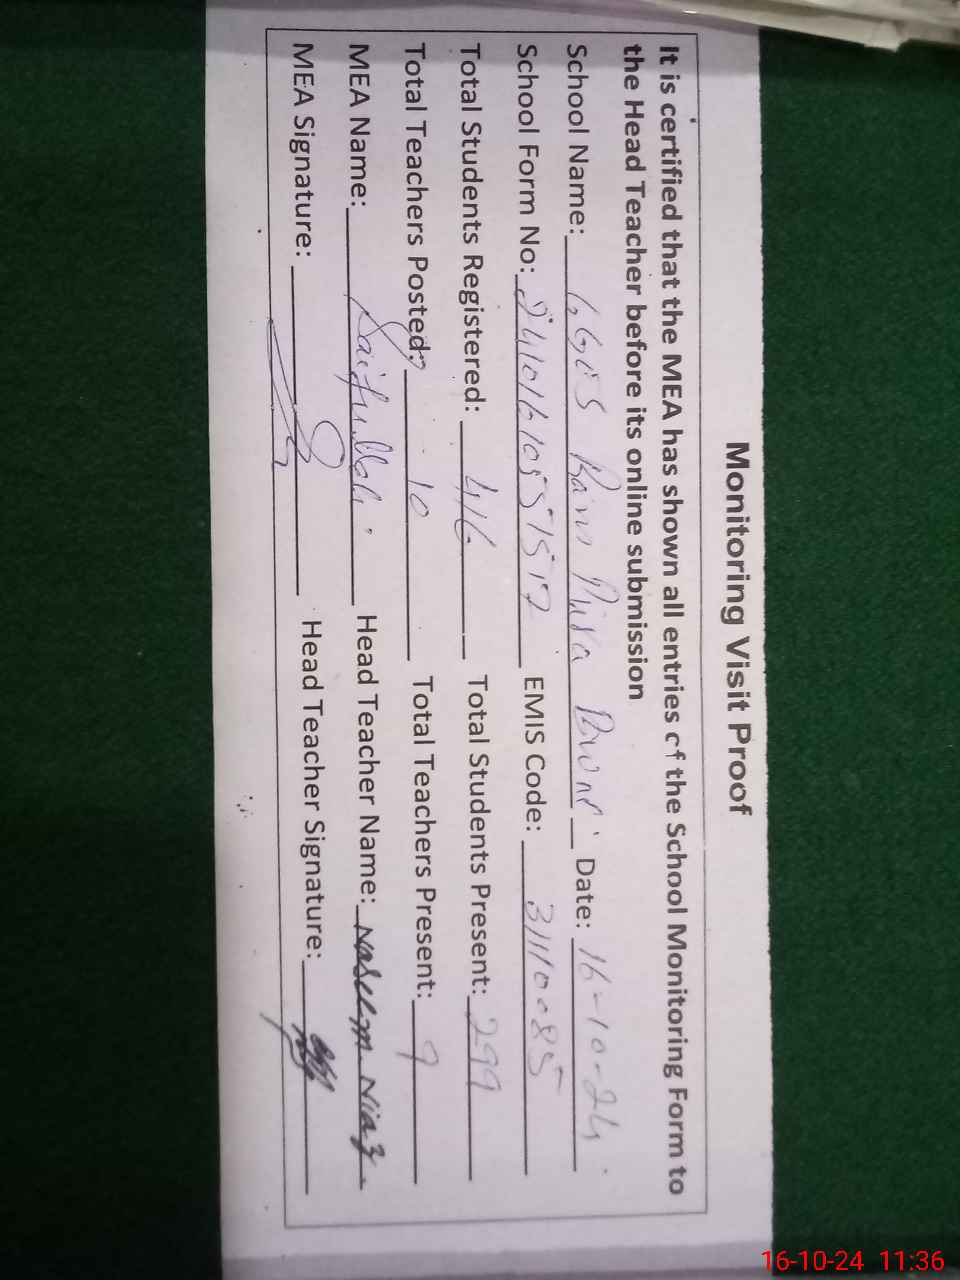 Monitoring Visit Proof
It is certified that the MEA has shown all entries of the School Monitoring Form to
the Head Teacher before its online submission
School Name: Date: 16-10-24
School Form No: EMIS Code: 31110085
Total Students Registered: 416 Total Students Present: 299
Total Teachers Posted: 10 Total Teachers Present: 9
MEA Name: Saifullah Head Teacher Name: Naseem Niaz
MEA Signature: Head Teacher Signature:
16-10-24 11:36